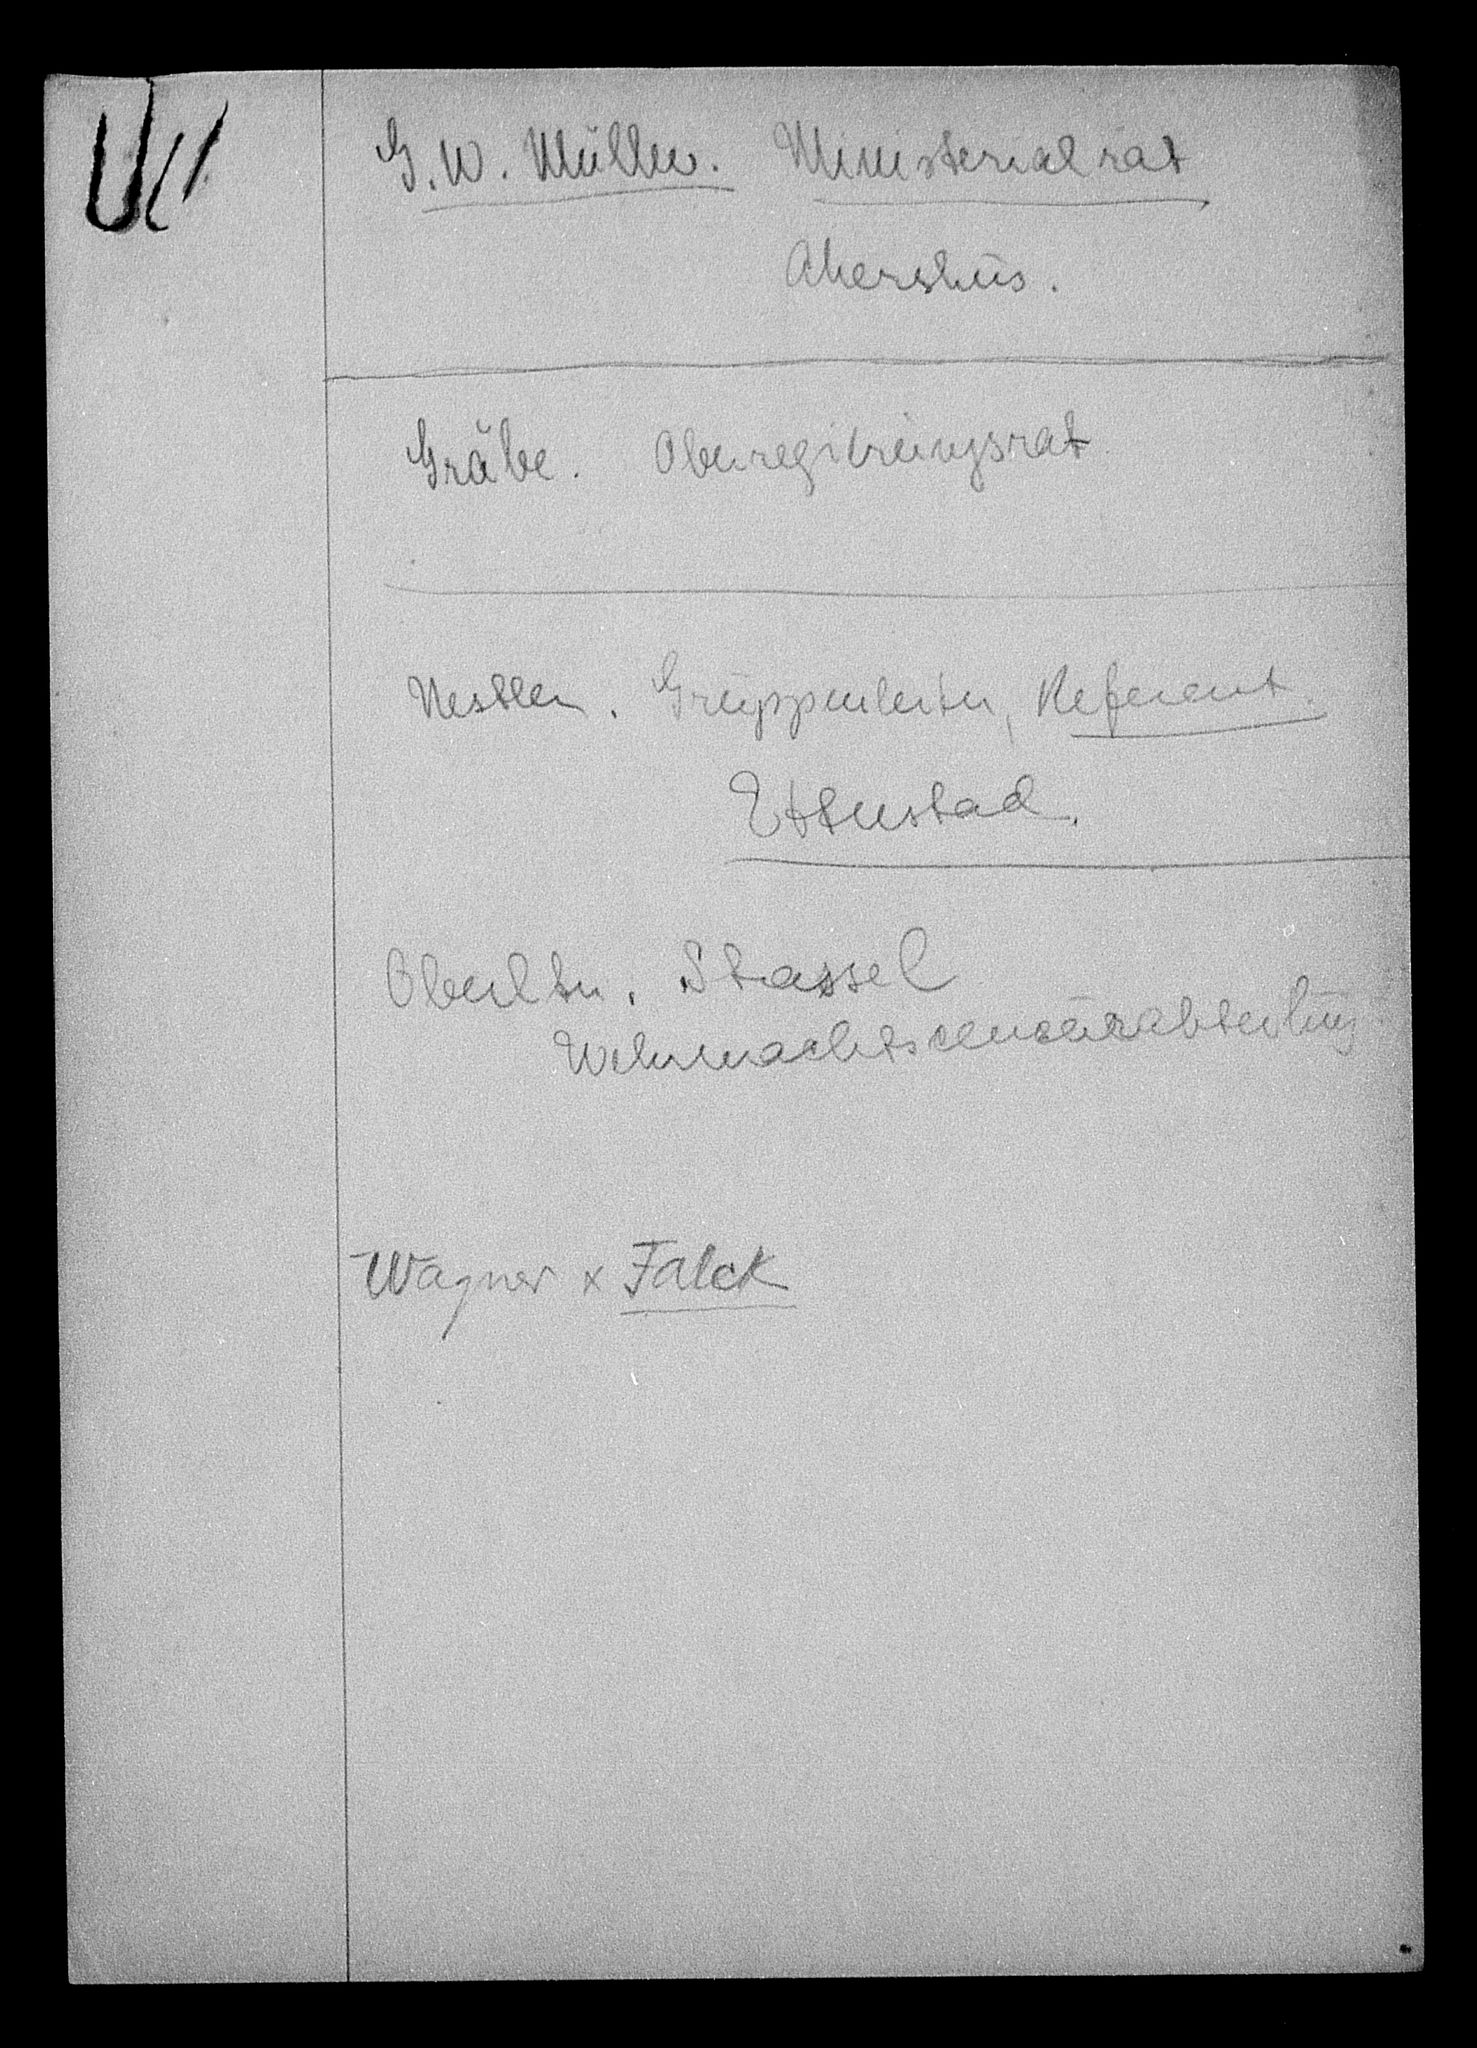 G. W. Müller. Ministerialrat
Akershus.
Gräbe. Oberregierungsrat
Nestler. Gruppenleiter, Referent.
Oberltn. Stassel
Wehrmachtscensurabteilung
Wagner x Falck